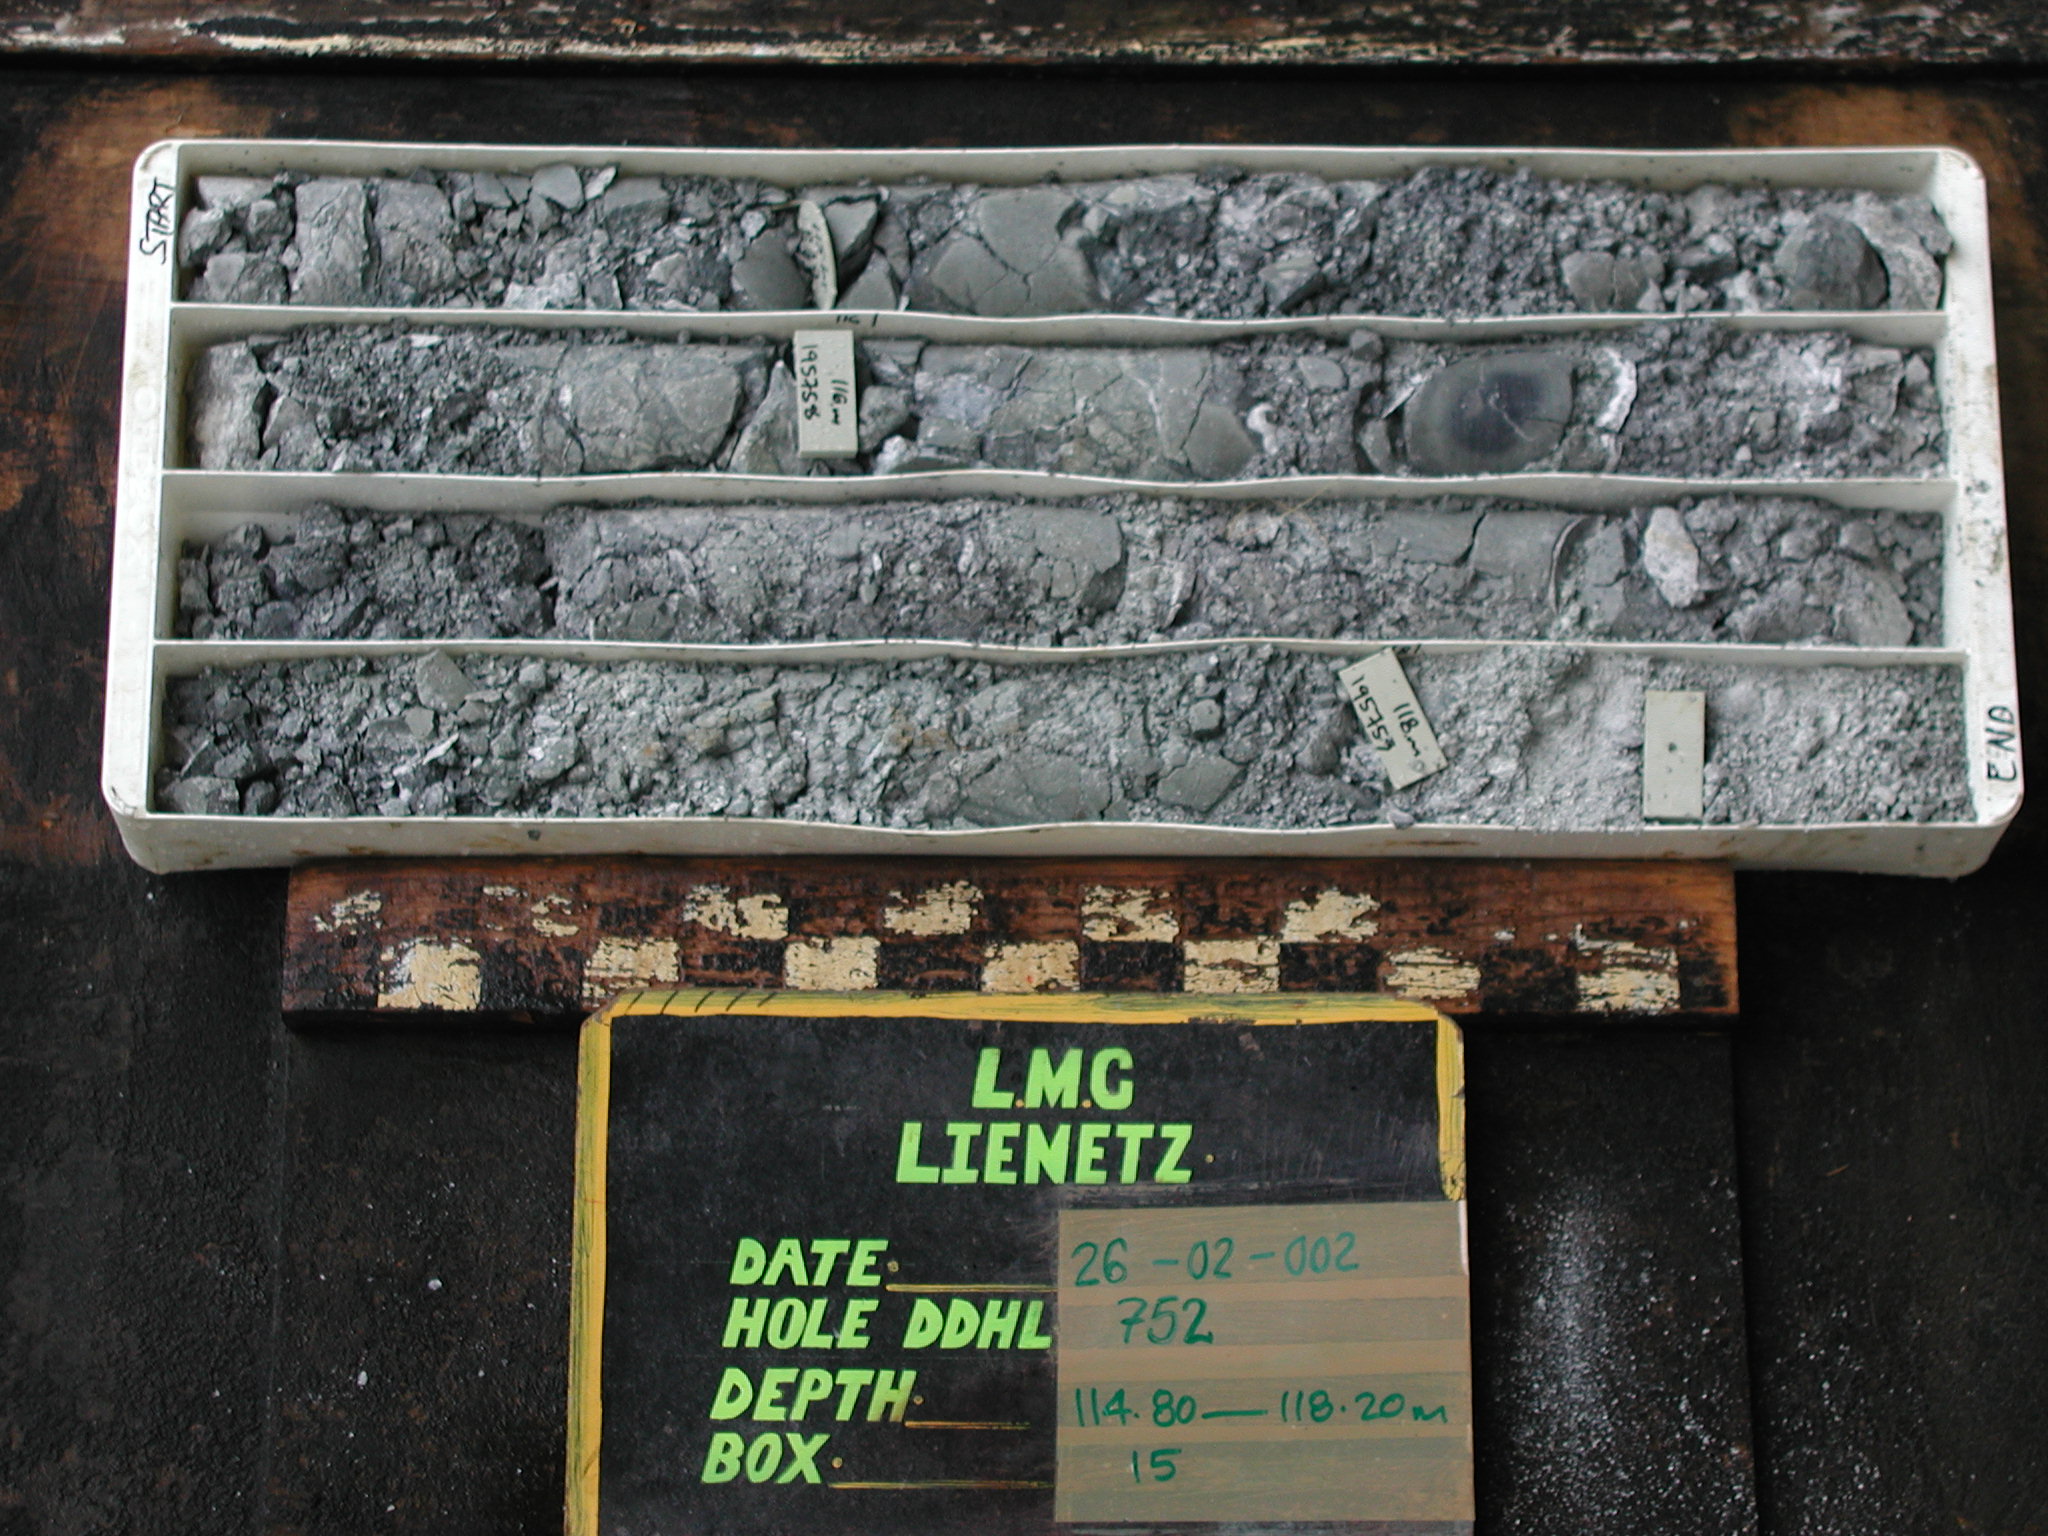 START
116
116m
195758
118m
195759
END
L.M.C
LIENETZ.
DATE. 26-02-002
HOLE DDHL 752
DEPTH. 114.80 — 118.20m
BOX. 15